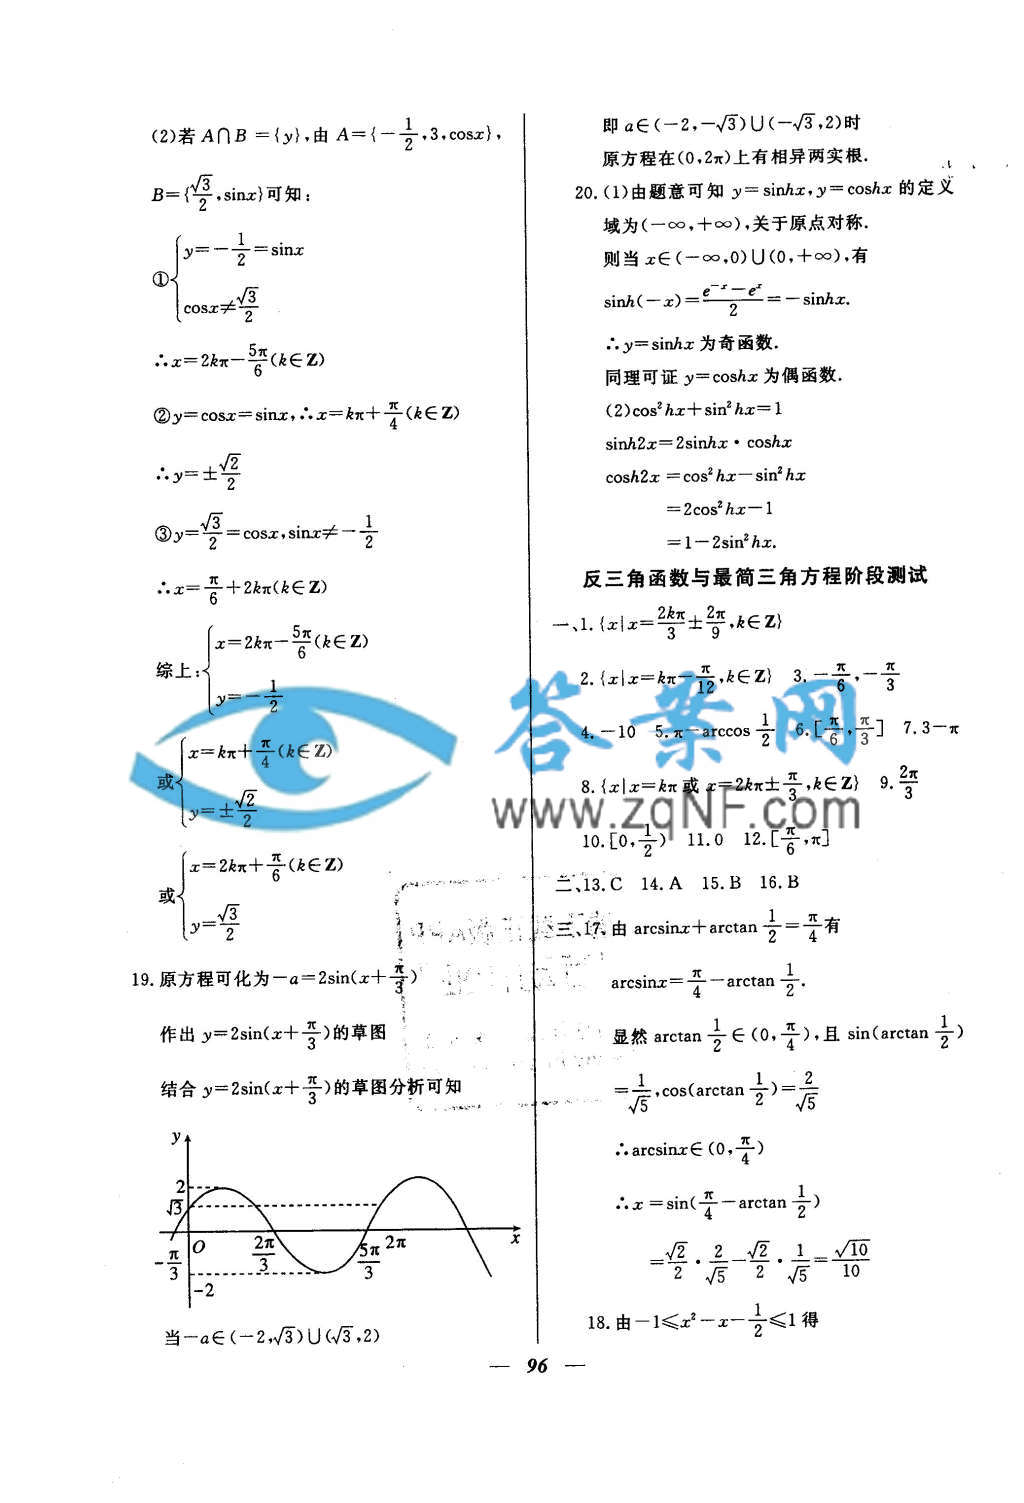 (2)若 A∩B={y},由 A={-1/2,3,cosx},
B={√3/2,sinx}可知:
①{y=-1/2=sinx
cosx≠√3/2
∴x=2kπ-5π/6(k∈Z)
②y=cosx=sinx,∴x=kπ+π/4(k∈Z)
∴y=±√2/2
③y=√3/2=cosx,sinx≠-1/2
∴x=π/6+2kπ(k∈Z)
综上:{x=2kπ-5π/6(k∈Z)
y=-1/2
或{x=kπ+π/4(k∈Z)
y=±√2/2
或{x=2kπ+π/6(k∈Z)
y=√3/2
19.原方程可化为-a=2sin(x+π/3)
作出 y=2sin(x+π/3)的草图
结合 y=2sin(x+π/3)的草图分析可知
y
2
√3
-π/3 O 2π/3 5π/3 2π x
-2
当-a∈(-2,√3)∪(√3,2)
即 a∈(-2,-√3)∪(-√3,2)时
原方程在(0,2π)上有相异两实根.
20.(1)由题意可知 y=sinhx,y=coshx 的定义
域为(-∞,+∞),关于原点对称.
则当 x∈(-∞,0)∪(0,+∞),有
sinh(-x)=(e^-x-e^x)/2=-sinhx.
∴y=sinhx 为奇函数.
同理可证 y=coshx 为偶函数.
(2)cos²hx+sin²hx=1
sinh2x=2sinhx·coshx
cosh2x=cos²hx-sin²hx
=2cos²hx-1
=1-2sin²hx.
反三角函数与最简三角方程阶段测试
一、1.{x|x=2kπ/3±2π/9,k∈Z}
2.{x|x=kπ-π/12,k∈Z} 3.-π/6,-π/3
4.-10 5.π-arccos 1/2 6.[π/6,π/3] 7.3-π
8.{x|x=kπ或 x=2kπ±π/3,k∈Z} 9.2π/3
10.[0,1/2) 11.0 12.[π/6,π]
二、13.C 14.A 15.B 16.B
三、17.由 arcsinx+arctan 1/2=π/4有
arcsinx=π/4-arctan 1/2.
显然 arctan 1/2∈(0,π/4),且 sin(arctan 1/2)
=1/√5,cos(arctan 1/2)=2/√5
∴arcsinx∈(0,π/4)
∴x=sin(π/4-arctan 1/2)
=√2/2·2/√5-√2/2·1/√5=√10/10
18.由-1≤x²-x-1/2≤1得
— 96 —
答案网
www.zqNF.com